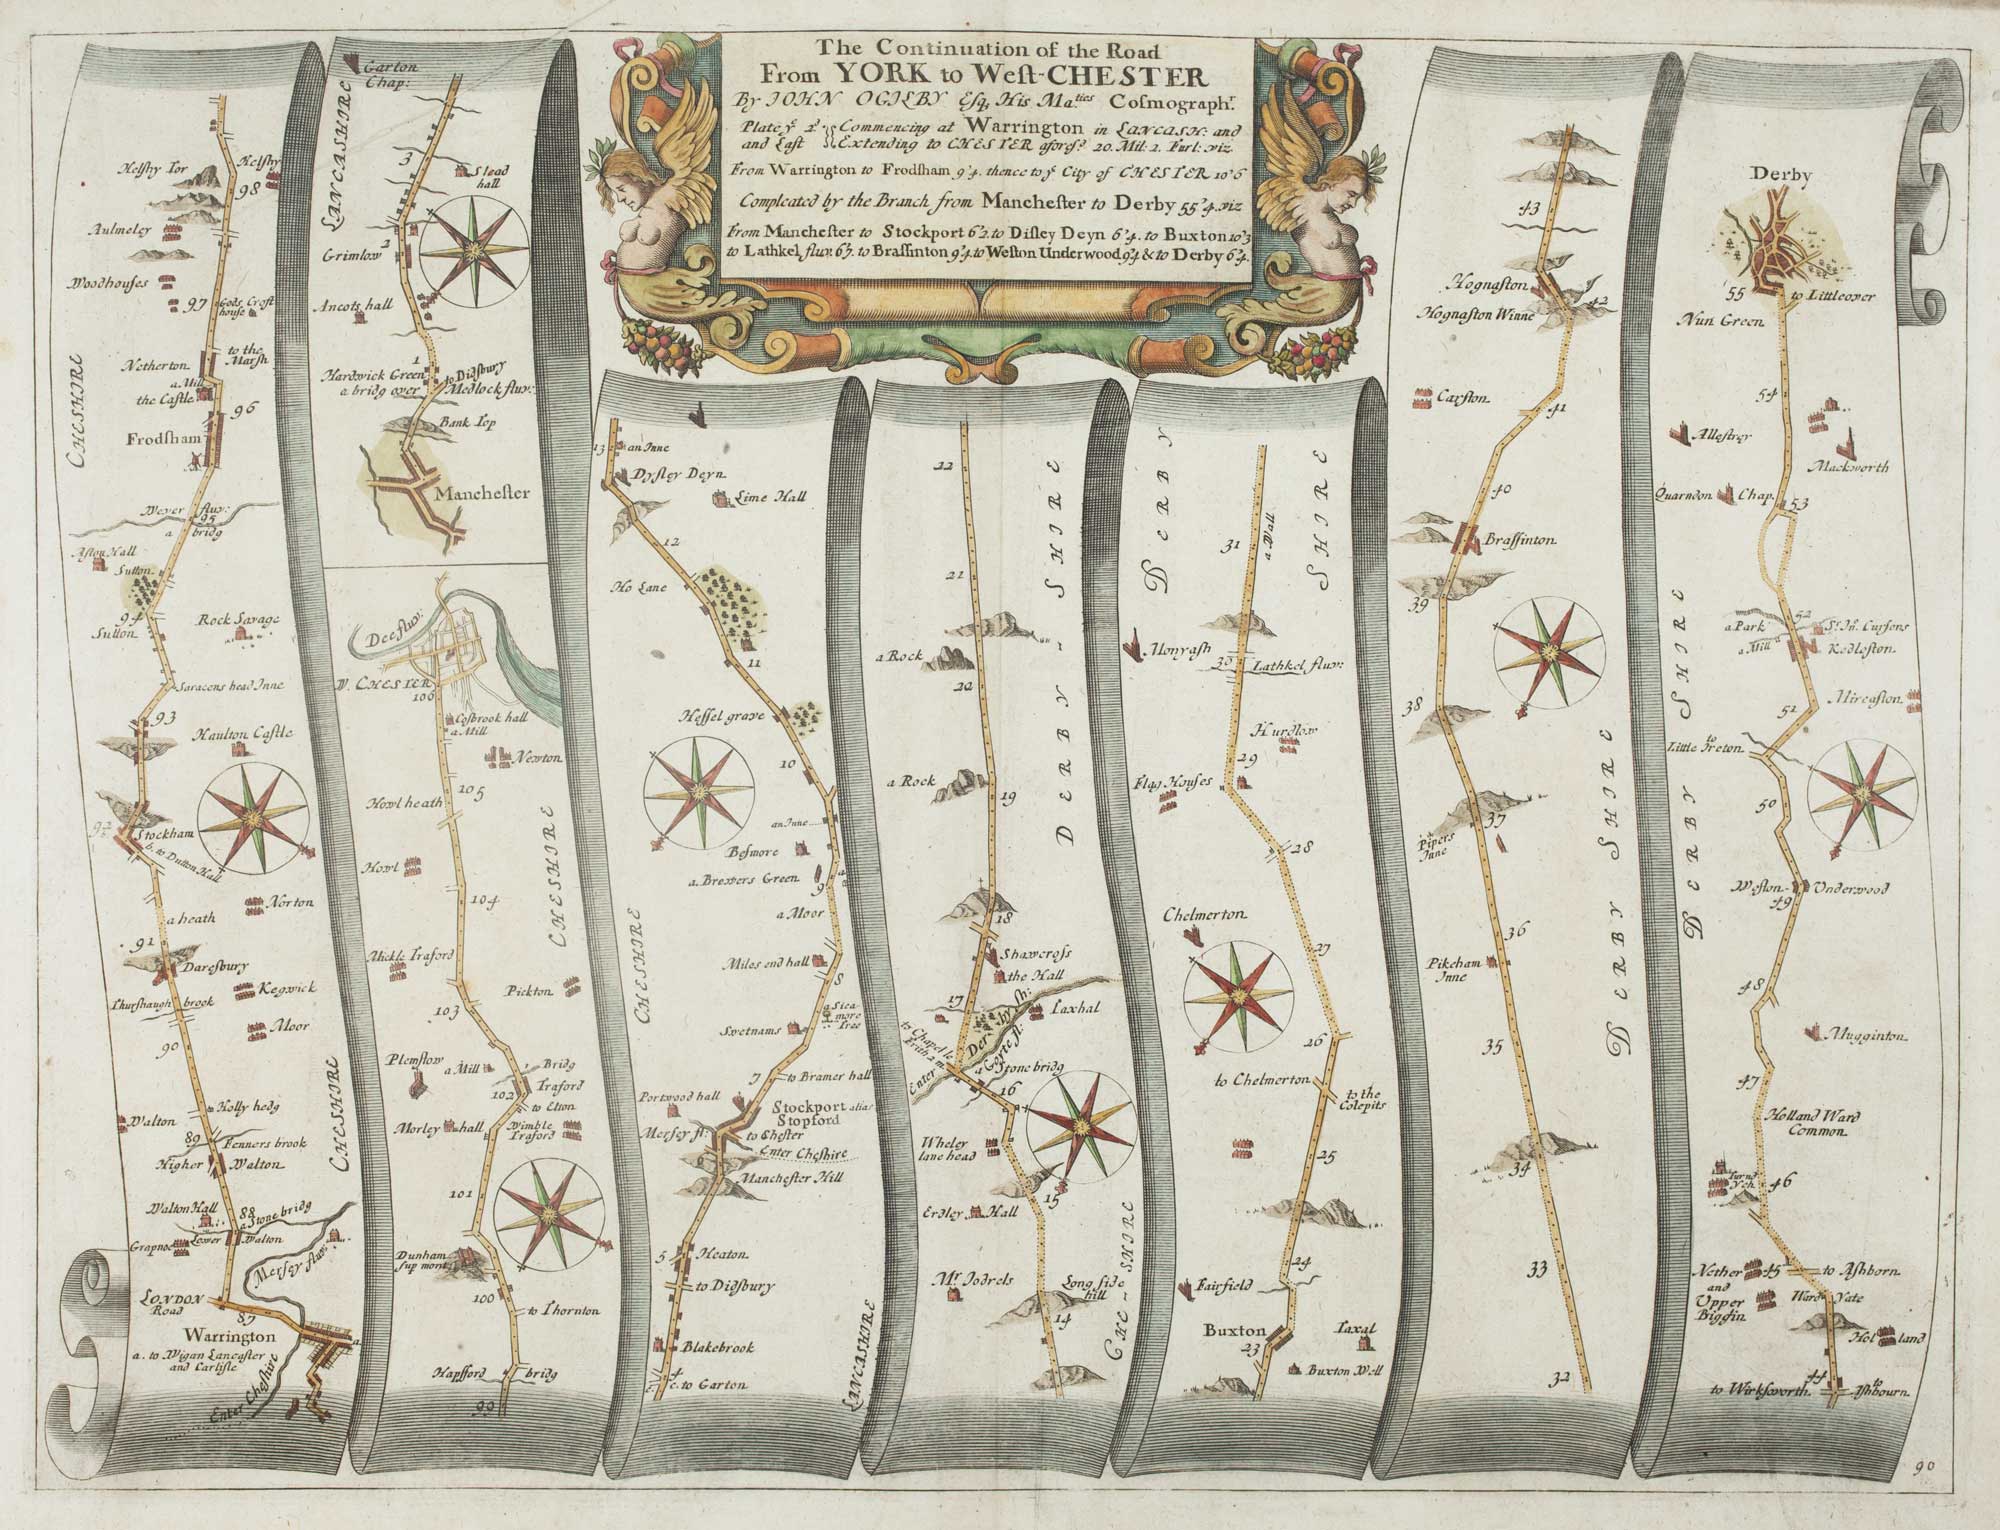 The Continuation of the Road
From YORK to Weſt-CHESTER
By IOHN OGILBY Eſqr, His Maties Coſmographr.
Plate ye 2d. Commencing at Warrington in LANCASH: and
and Laſt Extending to CHESTER aforesd. 20. Mil: 2. Furl: viz.
From Warrington to Frodſham 9'4. thence to ye City of CHESTER 10'6
Compleated by the Branch from Mancheſter to Derby 55'4. viz
From Mancheſter to Stockport 6'2. to Diſley Deyn 6'4. to Buxton 10'3
to Lathkel fluv. 6'7. to Braſſinton 9'4. to Weſton Underwood 9'4 & to Derby 6'4.
Helſby Tor
Helſby
98
Aulmeley
Woodhouſes
97
Gods Croft
houſe
CHESHIRE
Netherton
to the
Marsh
a Mill
the Caſtle
96
Frodſham
Wever fluv:
95
a bridg
Aſton Hall
Sutton
94
Sutton
Rock Savage
Saracens head Inne
93
Haulton Caſtle
92
Stockham
b. to Dutton Hall
Norton
a heath
91
Daresbury
Keqwick
Thurſhaugh brook
Moor
90
CHESHIRE
Holly hedg
Walton
89
Fenners brook
Higher Walton
Walton Hall
88
a Stone bridg
Grapnoe
Lower Walton
Merſey fluv:
LONDON
Road
87
Warrington
a. to Wigan Lancaſter
and Carliſle
a
Enter Cheſhire
Garton
Chap:
LANCASHIRE
3
Slead
hall
2
Grimlow
Ancots hall
1
Hardwick Green
to Didſbury
a bridg over Medlock fluv:
Bank Top
Mancheſter
Dee fluv:
W. CHESTER
106
Coſbrook hall
a Mill
Newton
105
Howl heath
CHESHIRE
Howl
104
Mickle Traford
Pickton
103
Plemſtow
a Mill
Bridg
Traford
102
to Elton
Morley hall
Wimble
Traford
101
Dunham
ſup mont
100
to Thornton
Hapſford bridg
99
13
an Inne
Dyſley Deyn
Lime Hall
12
Ho Lane
11
Heſſel grave
10
an Inne
Beſmore
a. Brewers Green
9
a Moor
CHESHIRE
Miles end hall
8
a Sica-
more
Tree
Swetnams
7
to Bramer hall
Portwood hall
Stockport alias
Stopford
Merſey fl:
to Cheſter
Enter Cheſhire
Mancheſter Hill
5
Heaton
to Didſbury
LANCASHIRE
Blakebrook
4
c. to Garton
22
DERBY-SHIRE
21
a Rock
20
a Rock
19
18
Shawcroſs
the Hall
17
to Chapelle
Frith
Laxhal
Enter Derby Sh:
Goyte fl:
a Stone bridg
16
Wheler
lane head
15
Erdley Hall
CHE-SHIRE
Mr. Iodrels
Long ſide
hill
14
DERBY
SHIRE
31
a Wall
Monyaſh
30
Lathkel fluv:
Hurdlow
29
Flag Houſes
28
Chelmerton
27
26
to Chelmerton
to the
Colepits
25
24
Fairfield
Buxton
23
Taxal
Buxton Well
43
Hognaſton
42
Hognaſton Winne
Carſton
41
40
Braſſinton
39
38
37
Pipers
Inne
DERBY SHIRE
36
Pikeham
Inne
35
34
33
32
Derby
55
to Littleover
Nun Green
54
Alleſtrey
Mackworth
Quarndon Chap.
53
DERBY SHIRE
52
a Park
a Mill
Sr. Jn. Curſons
Kedleſton
Mircaſton
51
to
Little Ireton
50
Weſton Underwood
49
48
Mugginton
47
Holland Ward
Common
46
Nether
and
Upper
Biggin
45
to Aſhborn
Ward Yate
Holland
44
to Wirkſworth
to
Aſhbourn
90